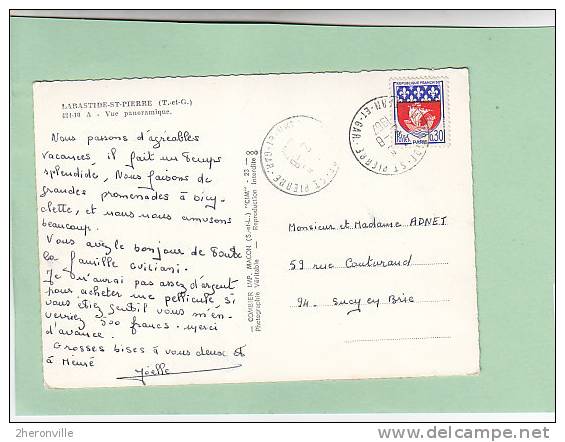 LABASTIDE-ST-PIERRE (T.-et-G.)
421-10 A - Vue panoramique.
Nous passons d'agréables
vacances, il fait un temps
splendide, Nous faisons de
grandes promenades à bicy-
clette, et nous nous amusons
beaucoup.
Vous avez le bonjour de toute
la famille
Je n'aurai pas assez d'argent
pour acheter une pellicule, si
vous étiez gentil vous m'en-
verriez 300 francs. merci
d'avance.
Grosses bises à vous deux et
à
Joëlle
— COMBIER IMP. MACON (S.-et-L.) "CIM" - 23 - 8
Photographie Véritable - Reproduction Interdite
REPUBLIQUE FRANCAISE
POSTES
0,30
PARIS
Monsieur et Madame ADNET
59 rue Couturaud
94 - Sucy en Brie
© zheronville
www.delcampe.net